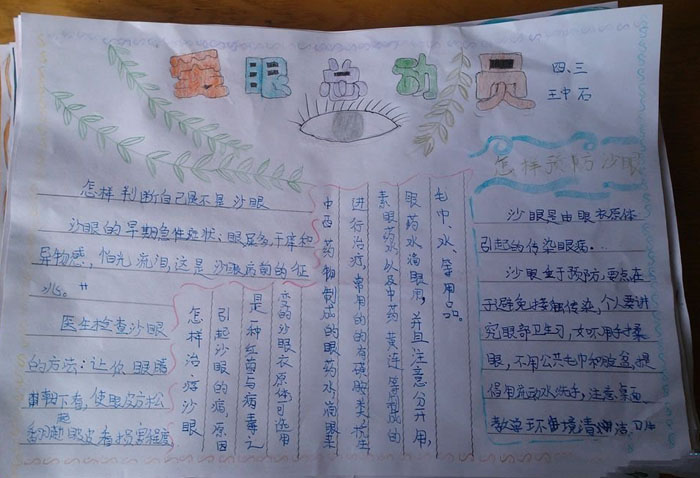 爱眼总动员
四、三
王中石
怎样判断自己是不是沙眼
沙眼的早期急性症状、眼屎多、干痒和
异物感，怕光流泪，这是沙眼病前的征
兆。
医生检查沙眼
的方法：让你眼睛
朝下看，使眼皮方松
翻起眼皮看损害程度，
怎样治疗沙眼
引起沙眼的病，原因
是一种红菌与病毒之
变的沙眼衣原体，可选用
中西药物制成的眼药水滴眼来
进行治疗，常用的的有磺胺类
素眼药水以及中药黄连等制成的
眼药水滴眼用，并且注意分开用，
毛巾、水等用品。
怎样预防沙眼
沙眼是由眼衣原体
引起的传染眼病．．
沙眼重于预防，要点在
于避免接触传染，个人要讲
究眼部卫生习，如不用手揉
眼，不用公共毛巾和脸盆，提
倡用流动水洗手，注意桌面
教室环审境清洁，